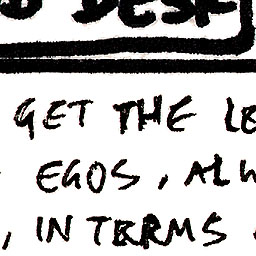 DESK
GET THE LE
EGOS, ALW
, IN TERMS